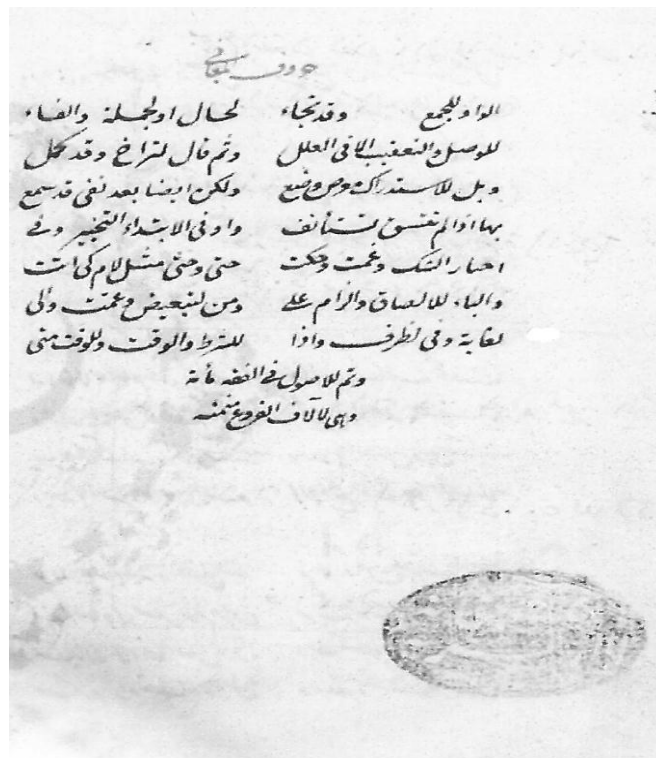 حروف معاني
الواو للجمع وقد تجاء لحال او لجملة والفاء
للوصل والتعقيب لا في العلل وثم قال لتراخ وقد تحل
وبل للاستدراك وضع ولكن ايضا بعد نفى قد سمع
بها اذا لم تتسق تستأنف واو في الابتداء التخيير وفي
اخبار الشك وعمت وحكت حتى وحتى مثل لام كي اتت
والباء للالصاق والزام على ومن لتبعيض وعمت والى
لغاية وفي لظرف واذا للشرط والوقت وللوقت متى
وتم للاصول في الفقه مأنة
وهي لآلاف الفروع متمنه